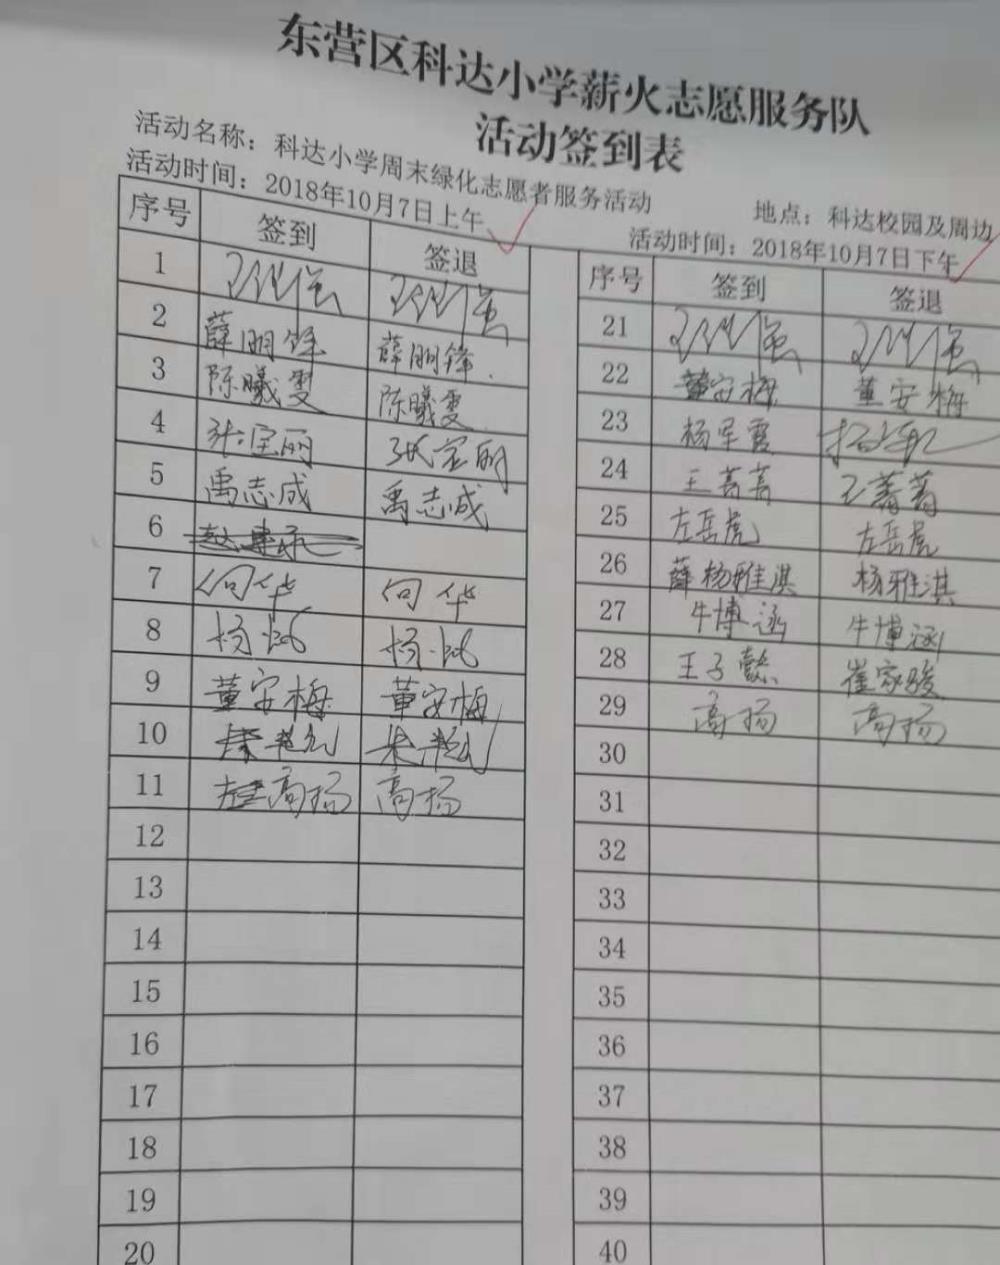 东营区科达小学薪火志愿服务队
活动签到表
活动名称：科达小学周末绿化志愿者服务活动
地点：科达校园及周边
活动时间：2018年10月7日上午
活动时间：2018年10月7日下午
序号 签到 签退
1
2 薛明锋 薛明锋
3 陈曦雯 陈曦雯
4 张宝丽 张宝丽
5 禹志成 禹志成
6
7 向华 向华
8 杨 杨
9 董安梅 董安梅
10
11 高扬 高扬
12
13
14
15
16
17
18
19
20
序号 签到 签退
21
22 董安梅 董安梅
23 杨军霞
24 王菁菁 王菁菁
25 左岳虎 左岳虎
26 薛杨雅淇 杨雅淇
27 牛博涵 牛博涵
28 王子懿 崔家骏
29 高扬 高扬
30
31
32
33
34
35
36
37
38
39
40